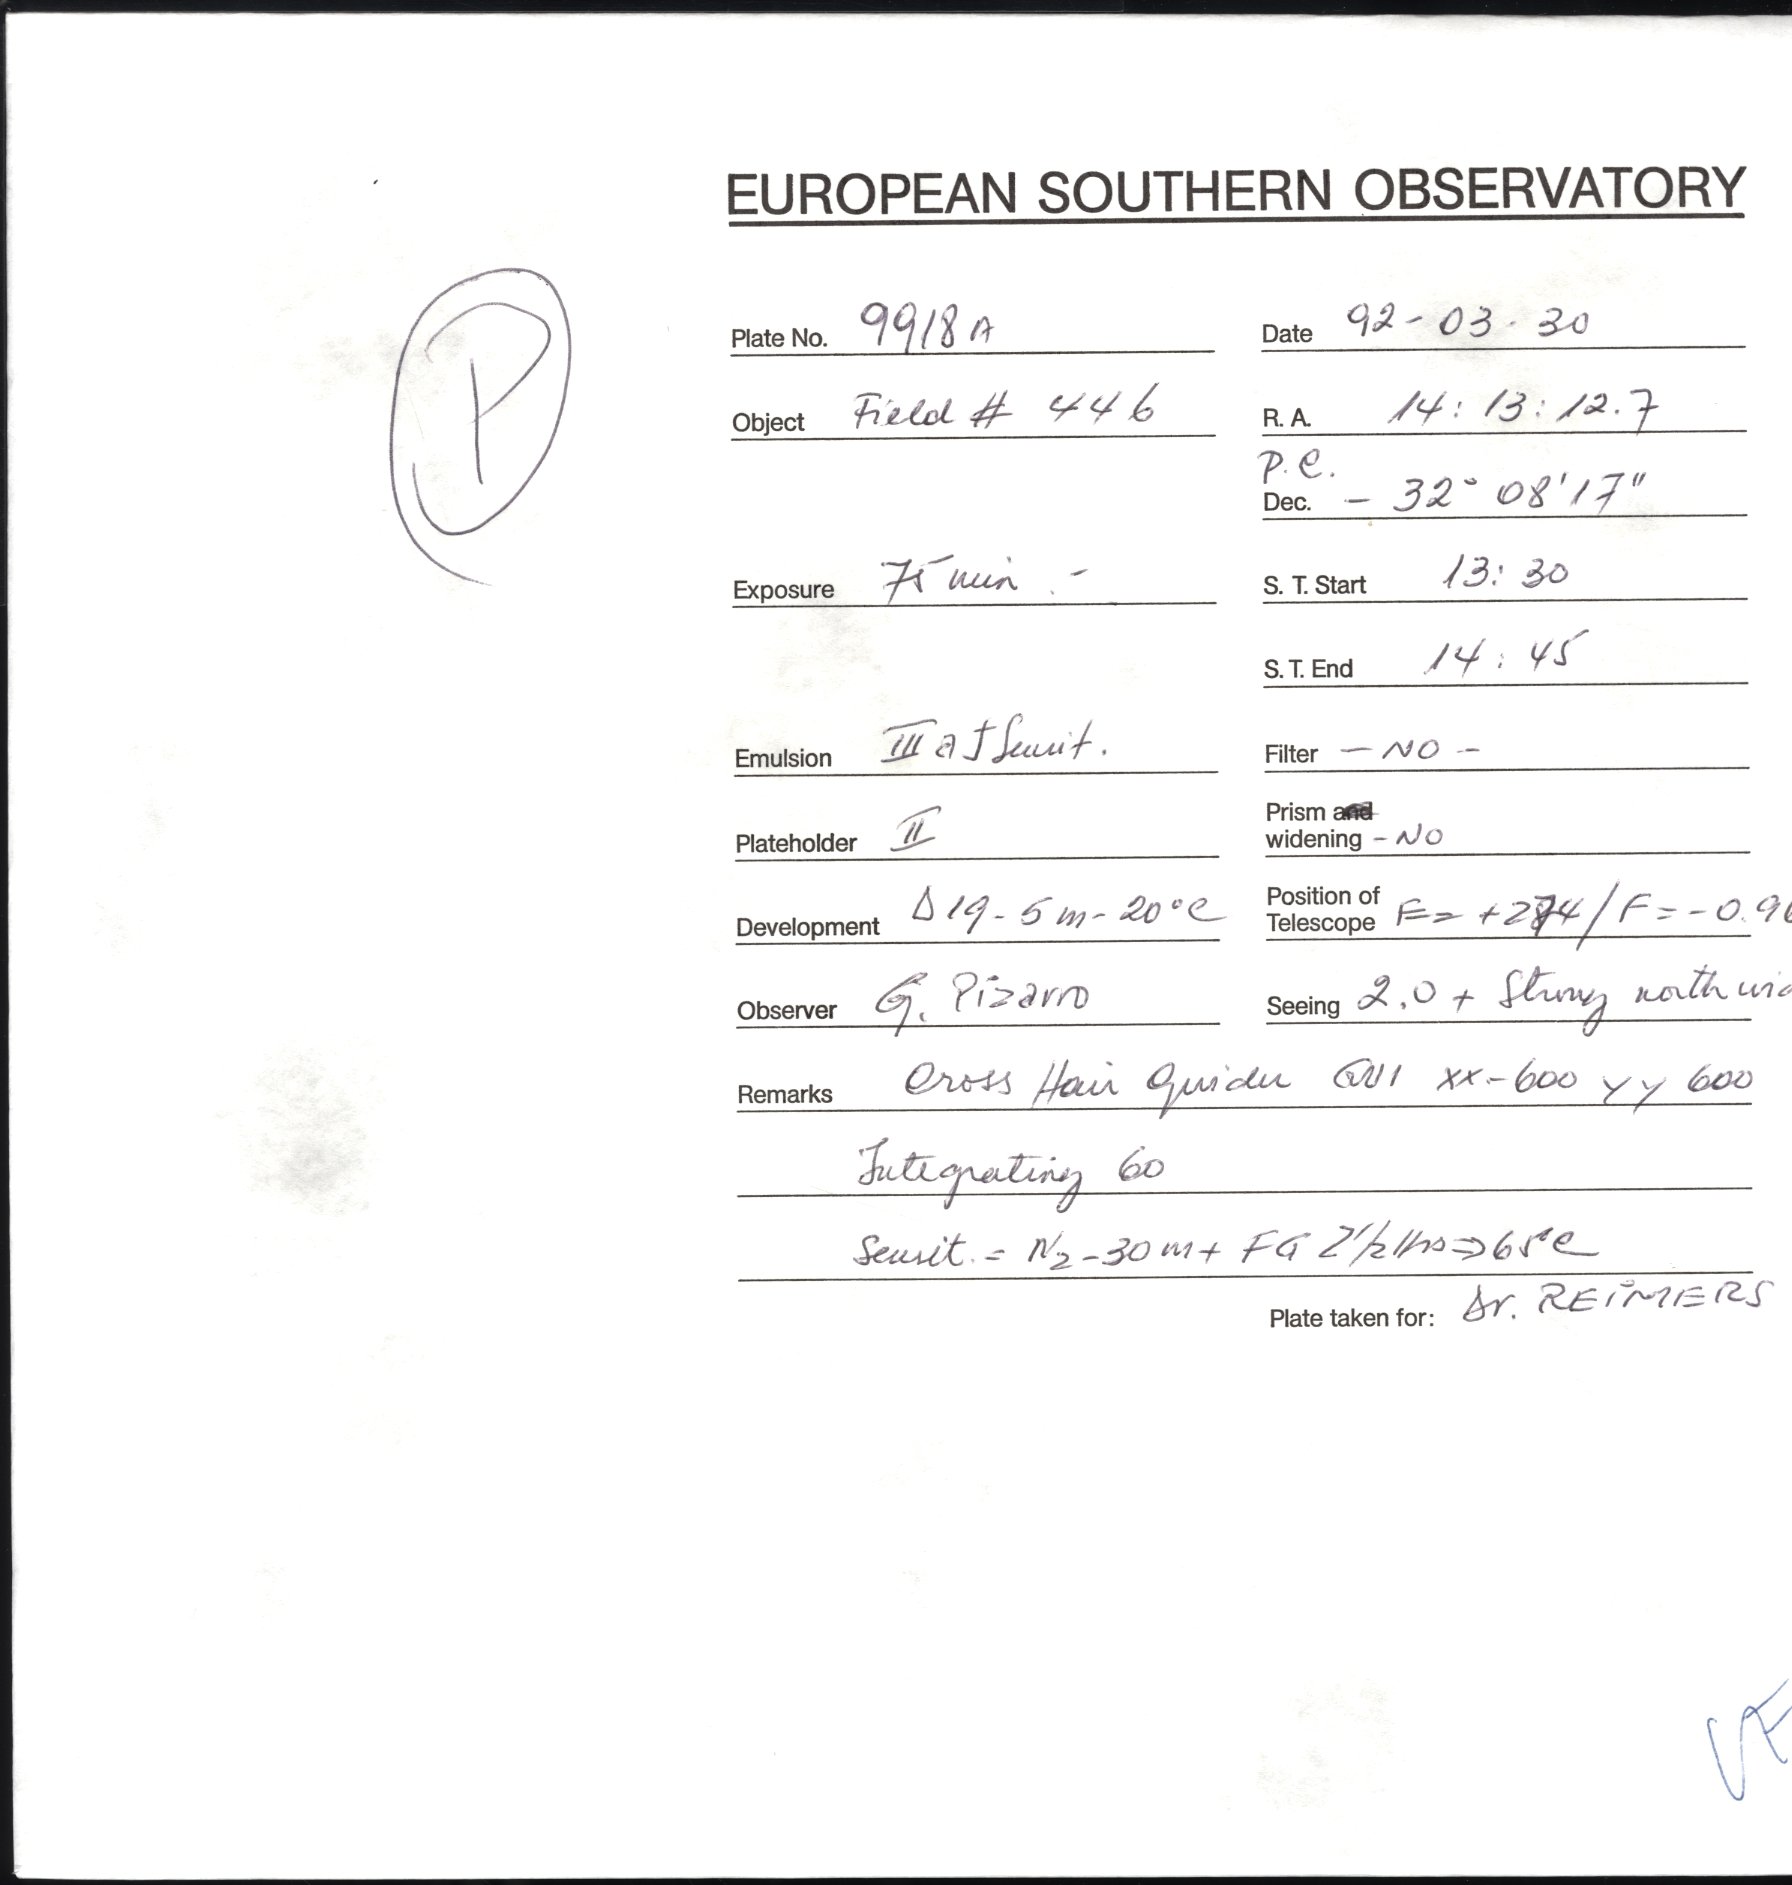 EUROPEAN SOUTHERN OBSERVATORY
P
Plate No. 9918A Date 92-03-30
Object Field # 446 R. A. 14:13:12.7
P.C.
Dec. - 32° 08' 17"
Exposure 75 min - S. T. Start 13:30
S. T. End 14:45
Emulsion III a J Sensit. Filter - NO -
Plateholder II Prism
widening - NO
Development D19 - 5 m - 20°C Position of
Telescope E= /F=-0.96
Observer G. Pizarro Seeing 2.0 + Strong north
Remarks Cross Hair Guider GN1 xx-600 yy 600
Integrating 60
Sensit. = N2-30m + FG 2 1/2 Hrs ⇒ 65°C
Plate taken for: Dr. REIMERS